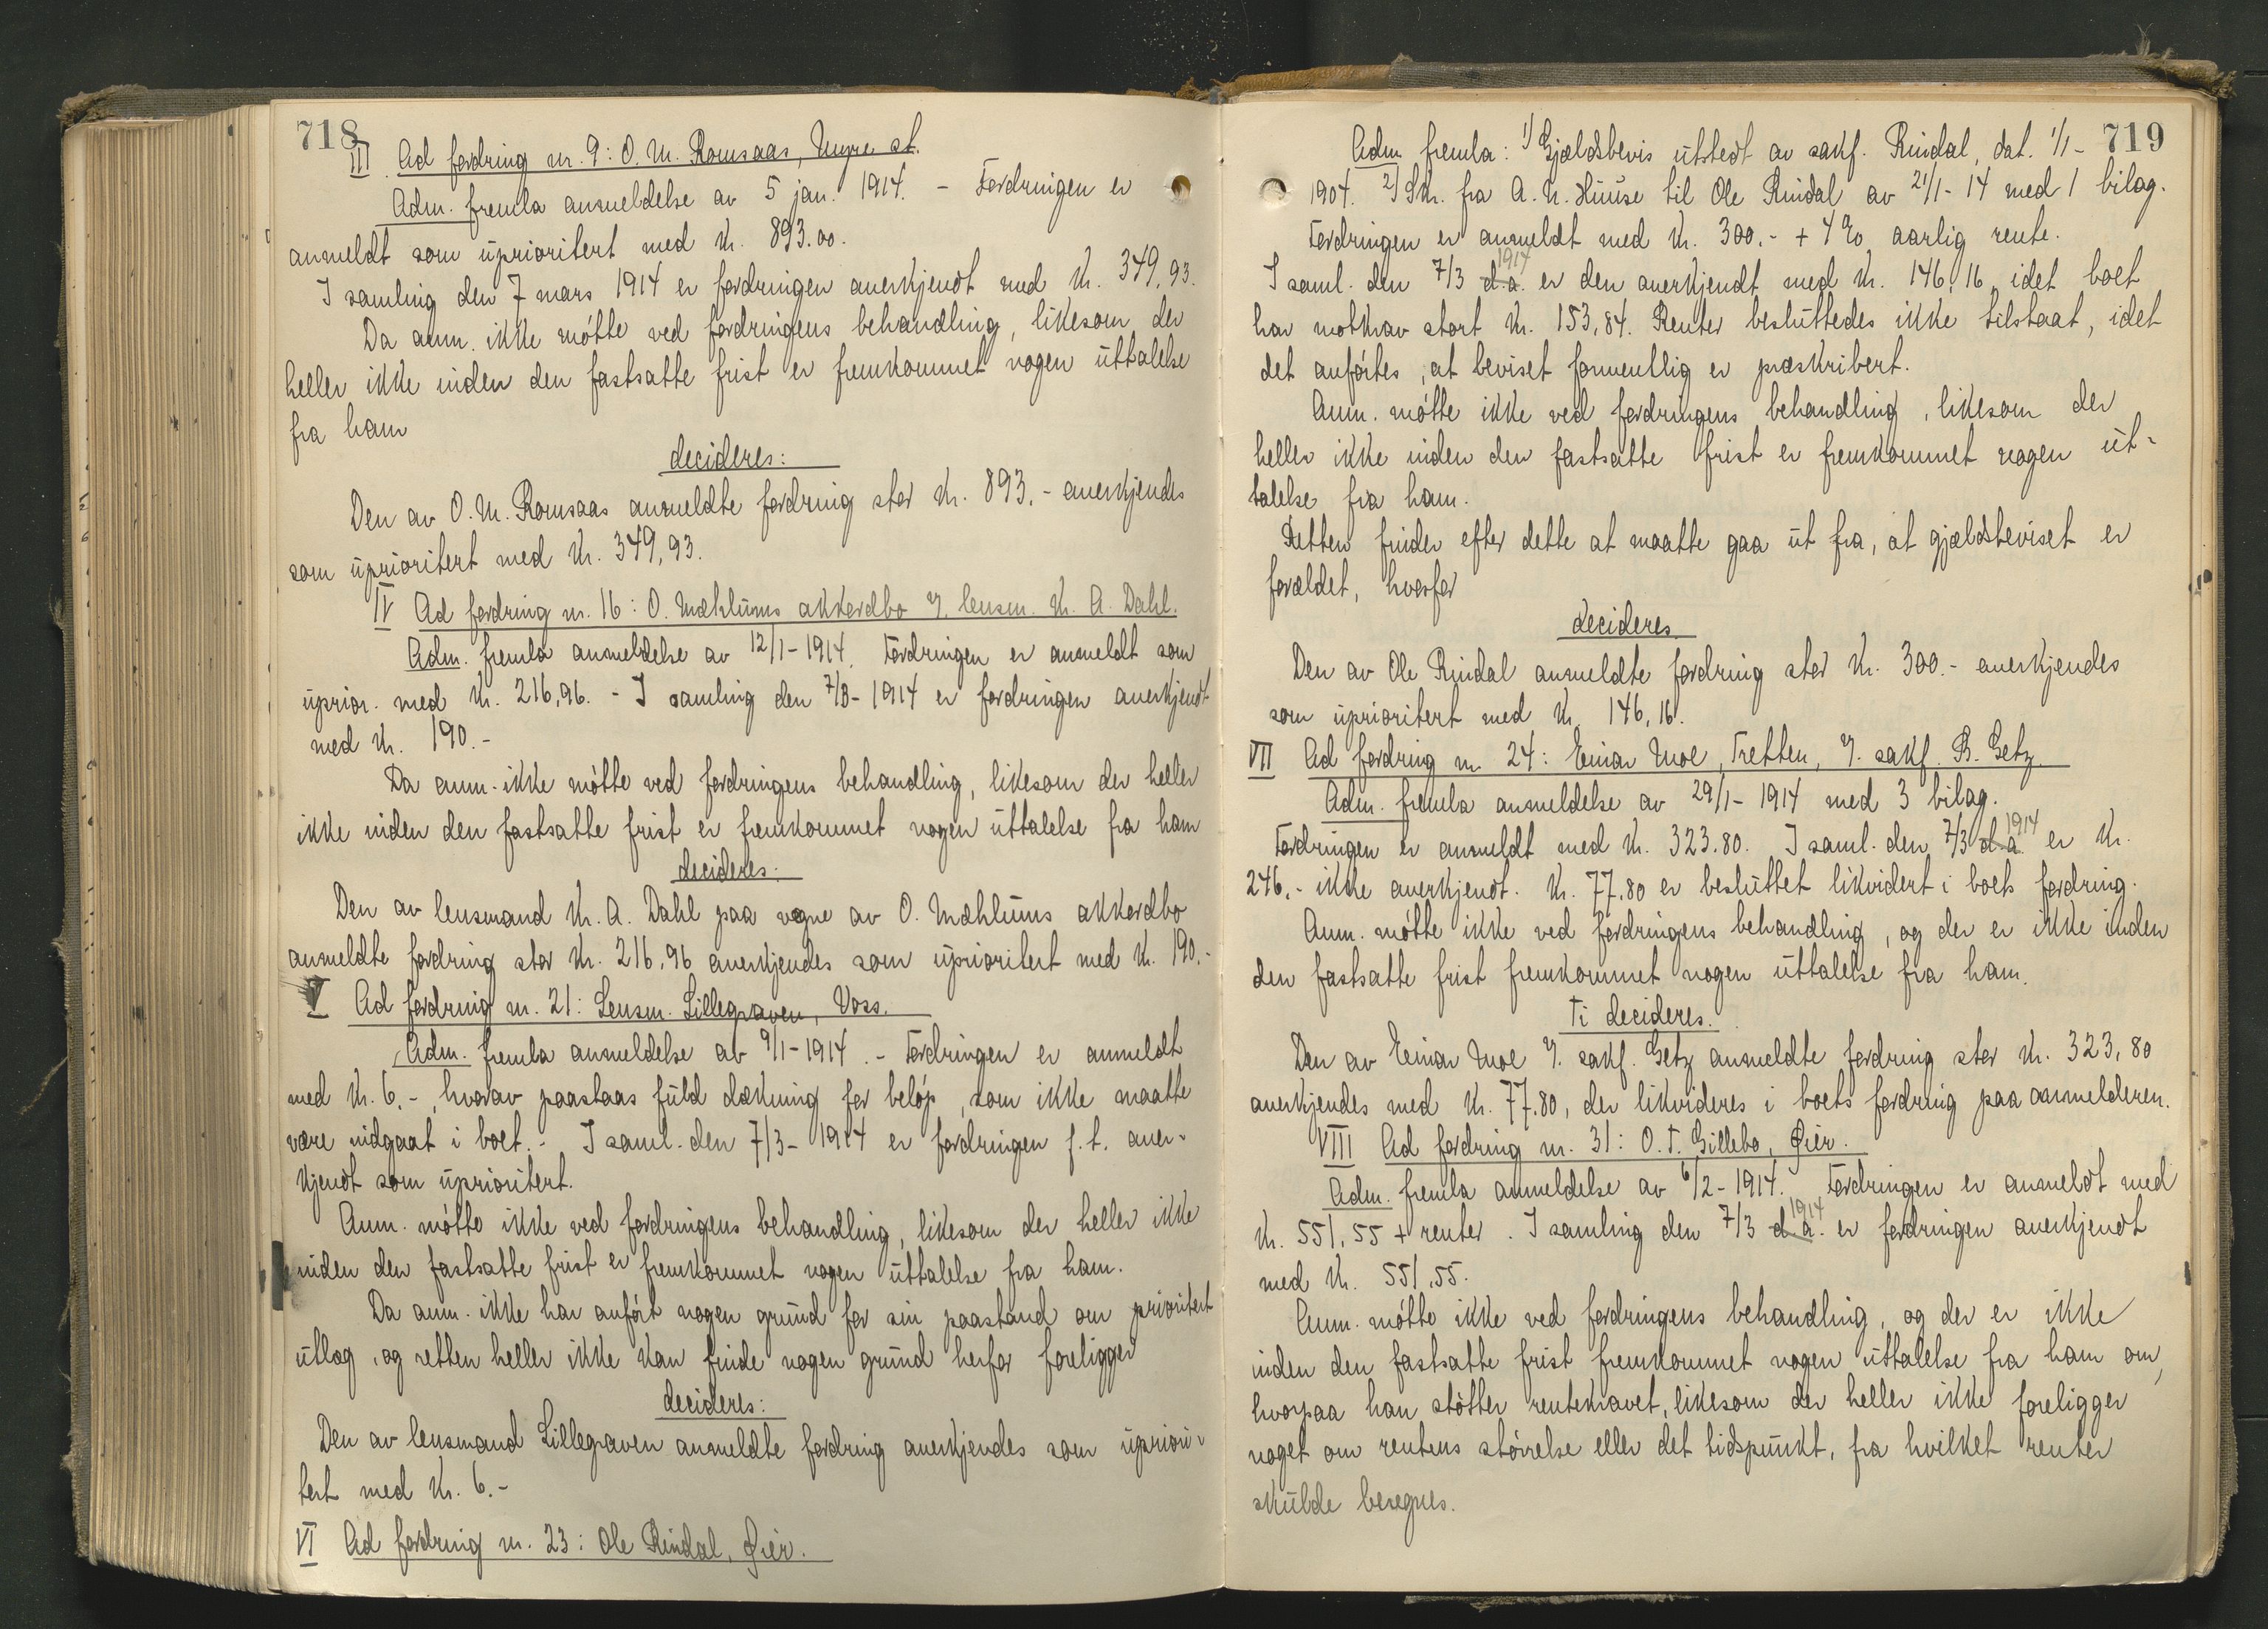 718
III Ad fordring nr. 9: O. M. Romsaas, Myre st.
Adm. fremla anmeldelse av 5 jan. 1914. - Fordringen er
anmeldt som uprioritert med kr. 893.00.
I samling den 7 mars 1914 er fordringen anerkjendt med kr. 349,93.
Da anm. ikke møtte ved fordringens behandling, likesom der
heller ikke inden den fastsatte frist er fremkommet nogen uttalelse
fra ham
decideres:
Den av O. M. Romsaas anmeldte fordring stor kr. 893.- anerkjendes
som uprioritert med kr. 349,93.
IV Ad fordring nr. 16: O. Mæhlums akkordbo v. lensm. K. A. Dahl.
Adm. fremla anmeldelse av 12/1-1914. Fordringen er anmeldt som
uprior. med kr. 216,96. - I samling den 7/3-1914 er fordringen anerkjendt
med kr. 190.-
Da anm. ikke møtte ved fordringens behandling, likesom der heller
ikke inden den fastsatte frist er fremkommet nogen uttalelse fra ham
decideres:
Den av lensmand K. A. Dahl paa vegne av O. Mæhlums akkordbo
anmeldte fordring stor kr. 216,96 anerkjendes som uprioritert med kr. 190.-
V Ad fordring nr. 21: Lensm. Lillegraven, Voss.
Adm. fremla anmeldelse av 9/1-1914. - Fordringen er anmeldt
med kr. 6.-, hvorav paastaas fuld dækning for beløp, som ikke maatte
være indgaat i boet. - I saml. den 7/3-1914 er fordringen f. t. aner-
kjendt som uprioritert.
Anm. møtte ikke ved fordringens behandling, likesom der heller ikke
inden den fastsatte frist er fremkommet nogen uttalelse fra ham.
Da anm. ikke har anført nogen grund for sin paastand om prioritert
utlæg, og retten heller ikke kan finde nogen grund herfor foreligger
decideres:
Den av lensmand Lillegraven anmeldte fordring anerkjendes som upriori-
tert med kr. 6.-
VI Ad fordring nr. 23: Ole Rindal, Øier.
719
Adm. fremla: 1/ Gjældsbevis utstedt av sakf. Rindal, dat. 1/1-
1904. 2/ Skr. fra A. N. Huuse til Ole Rindal av 21/1-14 med 1 bilag.
Fordringen er anmeldt med kr. 300.- + 4% aarlig rente.
I saml. den 7/3 d.a. 1914 er den anerkjendt med kr. 146,16, idet boet
har motkrav stort kr. 153,84. Renter besluttedes ikke tilstaat, idet
det anførtes, at beviset formentlig er præskribert.
Anm. møtte ikke ved fordringens behandling, likesom der
heller ikke inden den fastsatte frist er fremkommet nogen ut-
talelse fra ham.
Retten finder efter dette at maatte gaa ut fra, at gjældsbeviset er
forældet, hvorfor
decideres
Den av Ole Rindal anmeldte fordring stor kr. 300.- anerkjendes
som uprioritert med kr. 146,16.
VII Ad fordring nr. 24: Einar Moe, Tretten, v. sakf. B. Getz.
Adm. fremla anmeldelse av 29/1-1914 med 3 bilag.
Fordringen er anmeldt med kr. 323.80. I saml. den 7/3 d.a. 1914 er kr.
246.- ikke anerkjendt. kr. 77,80 er besluttet likvidert i boets fordring.
Anm. møtte ikke ved fordringens behandling, og der er ikke inden
den fastsatte frist fremkommet nogen uttalelse fra ham.
Ti decideres.
Den av Einar Moe v. sakf. Getz anmeldte fordring stor kr. 323,80
anerkjendes med kr. 77.80, der likvideres i boets fordring paa anmelderen.
VIII Ad fordring nr. 31: O. T. Gillebo, Øier.
Adm. fremla anmeldelse av 6/2-1914. Fordringen er anmeldt med
kr. 551.55 + renter. I samling den 7/3 d.a. 1914 er fordringen anerkjendt
med kr. 551,55.
Anm. møtte ikke ved fordringens behandling, og der er ikke
inden den fastsatte frist fremkommet nogen uttalelse fra ham om,
hvorpaa han støtter rentekravet, likesom der heller ikke foreligger
noget om rentens størrelse eller det tidspunkt, fra hvilket renter
skulde beregnes.